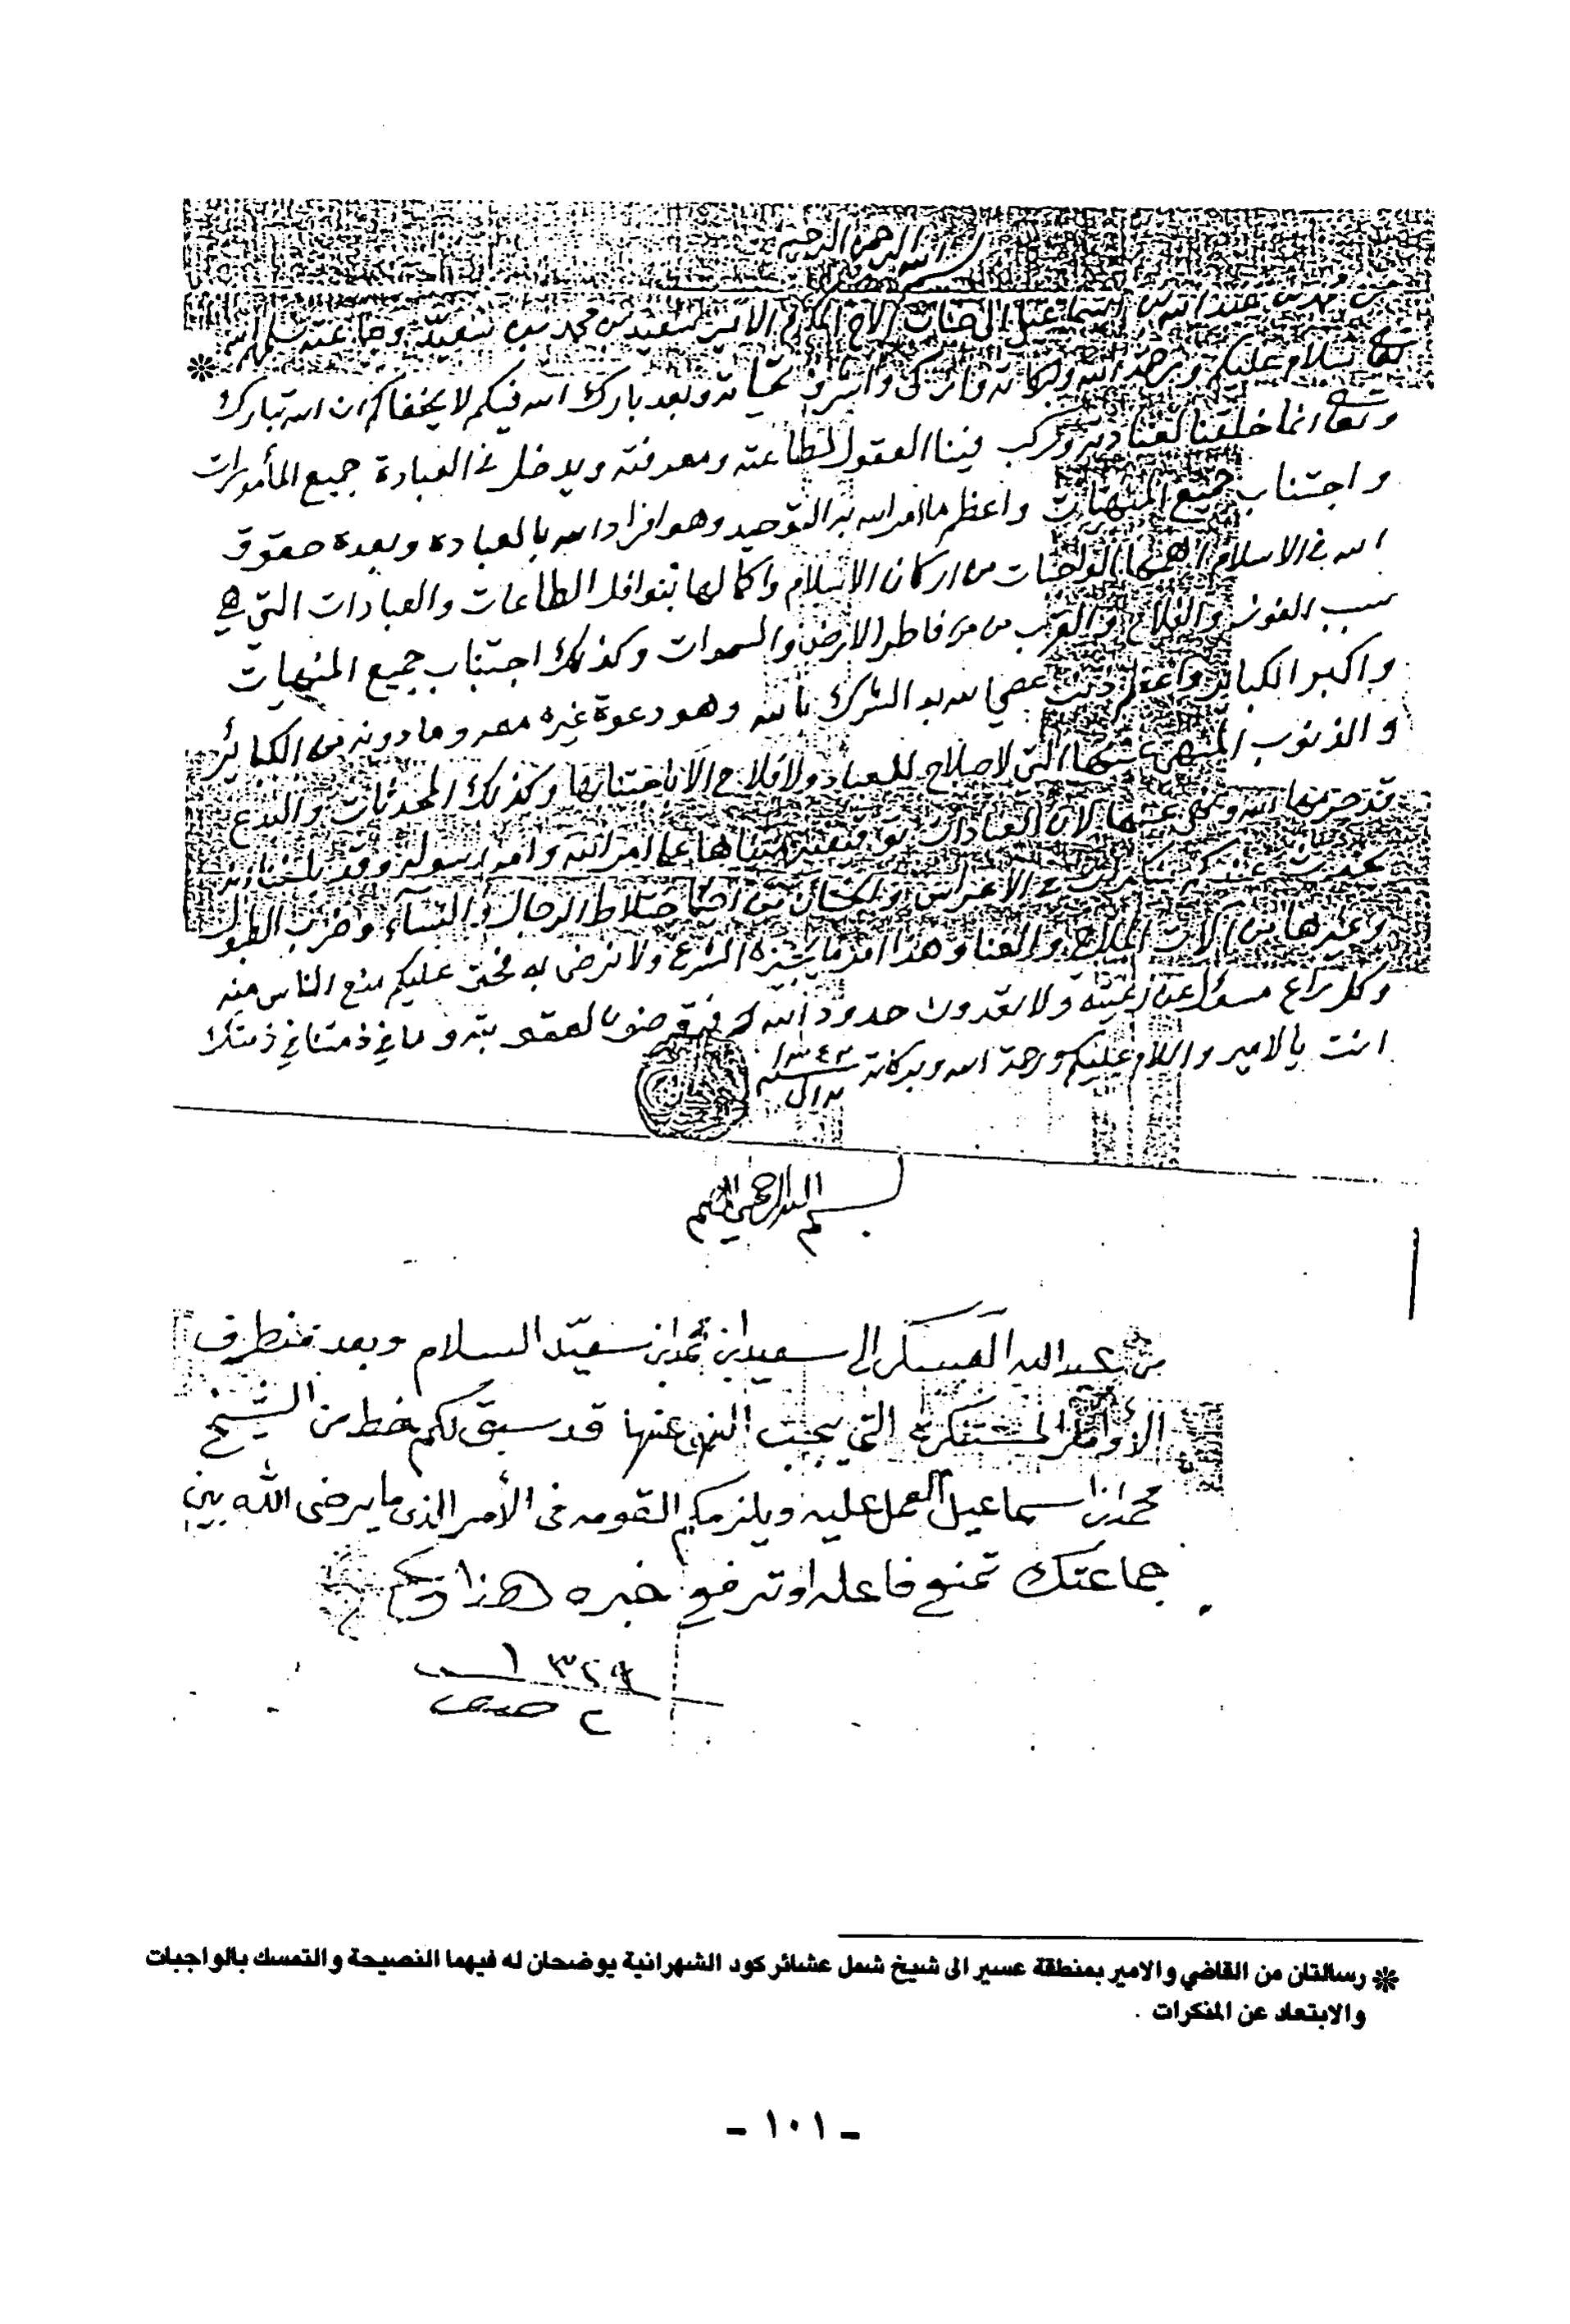 بسم الله الرحمن الرحيم
من محمد بن عبد الله بن اسماعيل الى جناب الاخ المكرم الامير سعيد بن محمد بن سعيد وجماعته سلمهم الله
تعالى سلام عليكم ورحمة الله وبركاته وازكى واشرف تحياته وبعد بارك الله فيكم لا يخفاكم ان الله تبارك
وتعالى انما خلقنا لعبادته وركب فينا العقول لطاعته ومعرفته ويدخل في العبادة جميع المأمورات
واجتناب جميع المنهيات واعظم ما امر الله به التوحيد وهو افراد الله بالعبادة وبعده حقوق
الله في الاسلام اهمها الواجبات من اركان الاسلام واكمالها بنوافل الطاعات والعبادات التي هي
سبب الفوز والفلاح والقرب من فاطر الارض والسموات وكذلك اجتناب جميع المنهيات
واكبر الكبائر واعظم ذنب عصي الله به الشرك بالله وهو دعوة غيره معه وما دونه من الكبائر
والذنوب المنهي عنها التي لاصلاح للعباد ولا فلاح الا باجتنابها وكذلك المحدثات والبدع
قد حرمها الله ونهى عنها لان العبادات توقيفية مبناها على امر الله وامر رسوله وقد بلغنا انه
يحدث عندكم منكرات في الاعراس او الختان من اختلاط الرجال والنساء وضرب الطبول
وغيرها من آلات الملاهي والغنا وهذا امر ما يجيزه الشرع ولا نرضى به فحق عليكم منع الناس منه
وكل راع مسؤل عن رعيته ولا تعدون حدود الله لعقوبته وما في ذمتنا في ذمتك
انت يالامير والسلام عليكم ورحمة الله وبركاته ١٣٤٣
بسم الله الرحمن الرحيم
من عبد الله العسكر الى سعيد ابن محمد ابن سعيد السلام وبعد منطرف
الأوامر المستنكره التي يجب النهي عنها قد سبق لكم خط من الشيخ
محمد ابن اسماعيل العمل عليه ويلزمكم القومه في الأمر الذي ما يرضى الله بين
جماعتك تمنع فاعله او ترفع خبره هذا
١٣٤٩
٢
* رسالتان من القاضي والامير بمنطقة عسير الى شيخ شمل عشائر كود الشهرانية يوضحان له فيهما النصيحة والتمسك بالواجبات
والابتعاد عن المنكرات .
- ١٠١ -